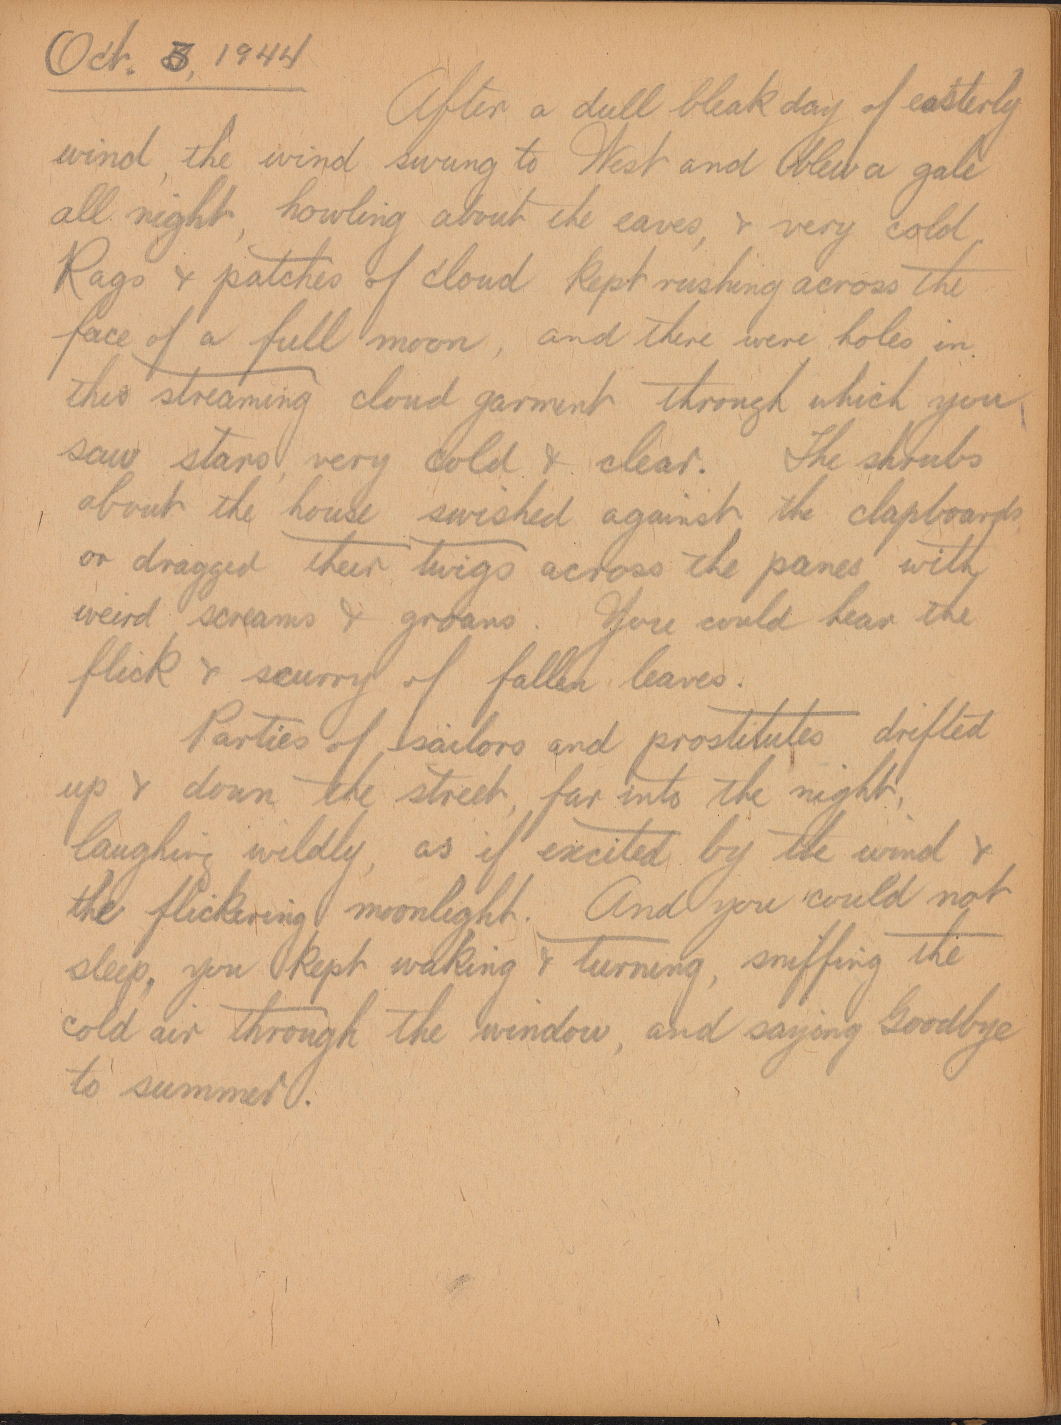 Oct. 3, 1944
After a dull bleak day of easterly
wind, the wind swung to West and blew a gale
all night, howling about the eaves, & very cold.
Rags & patches of cloud kept rushing across the
face of a full moon, and there were holes in
this streaming cloud garment through which you
saw stars, very cold & clear. The shrubs
about the house swished against the clapboards
or dragged their twigs across the panes with
weird screams & groans. You could hear the
flick & scurry of fallen leaves.
Parties of sailors and prostitutes drifted
up & down the street, far into the night,
laughing wildly, as if excited by the wind &
the flickering moonlight. And you could not
sleep, you kept waking & turning, sniffing the
cold air through the window, and saying Goodbye
to summer.